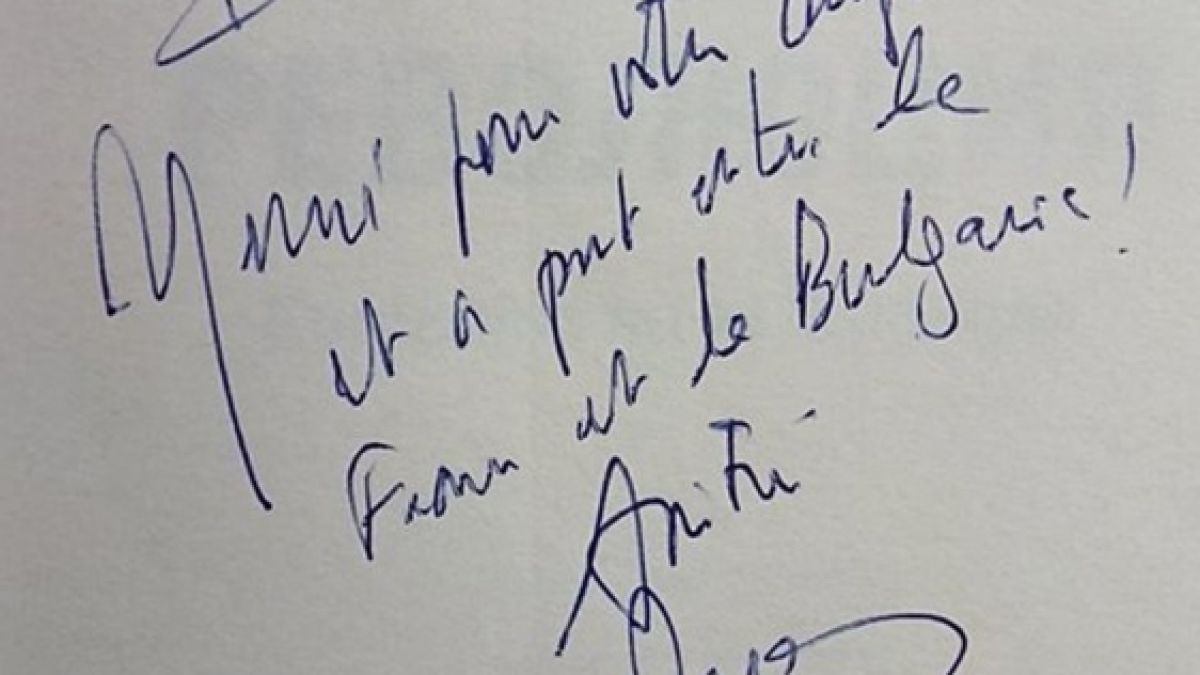 Merci pour votre
et ce pont entre la
France et la Bulgarie !
Amitié